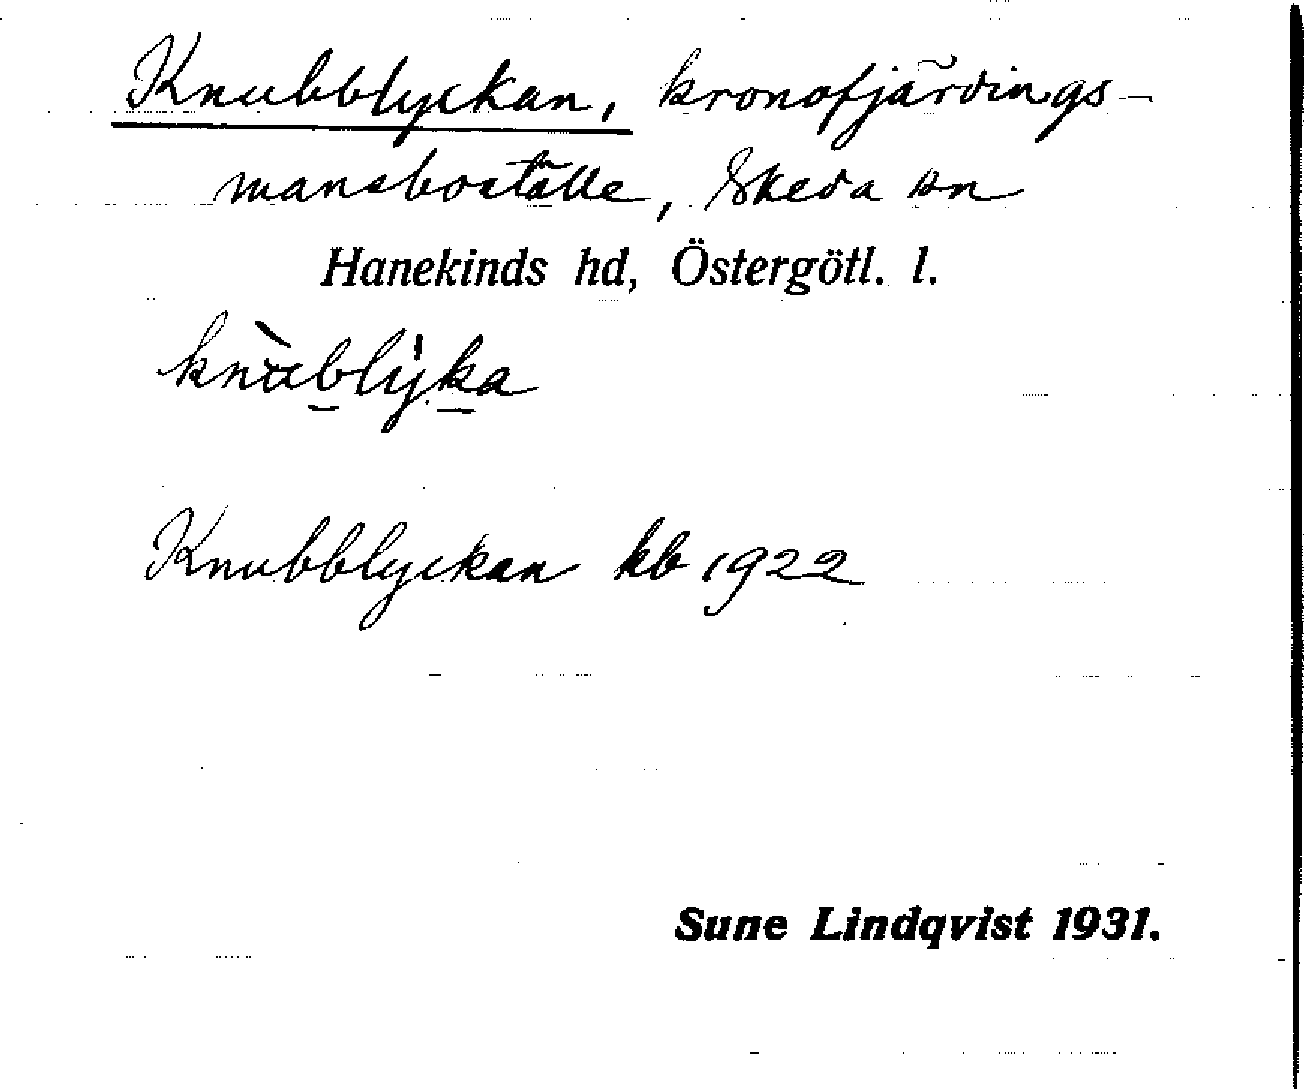 Knubblyckan, kronofjärdings-
mansboställe, Skeda sn
Hanekinds hd, Östergötl. l.
knùb̲lýk̲a
Knubblyckan kb 1922
Sune Lindqvist 1931.